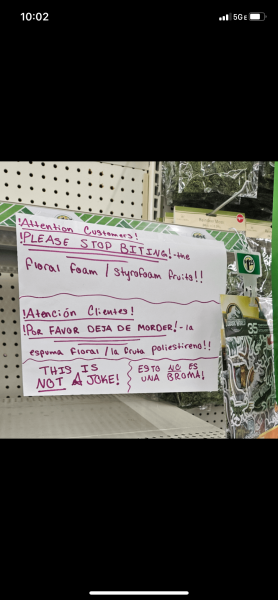 10:02
5GE
!Attention Customers!
!PLEASE STOP BITING!-the
floral foam / styrofoam fruits!!
!Atención Clientes!
!POR FAVOR DEJA DE MORDER!-la
espuma floral/la fruta poliestireno!!
THIS IS
NOT A JOKE!
ESTO NO ES
UNA BROMA!
35